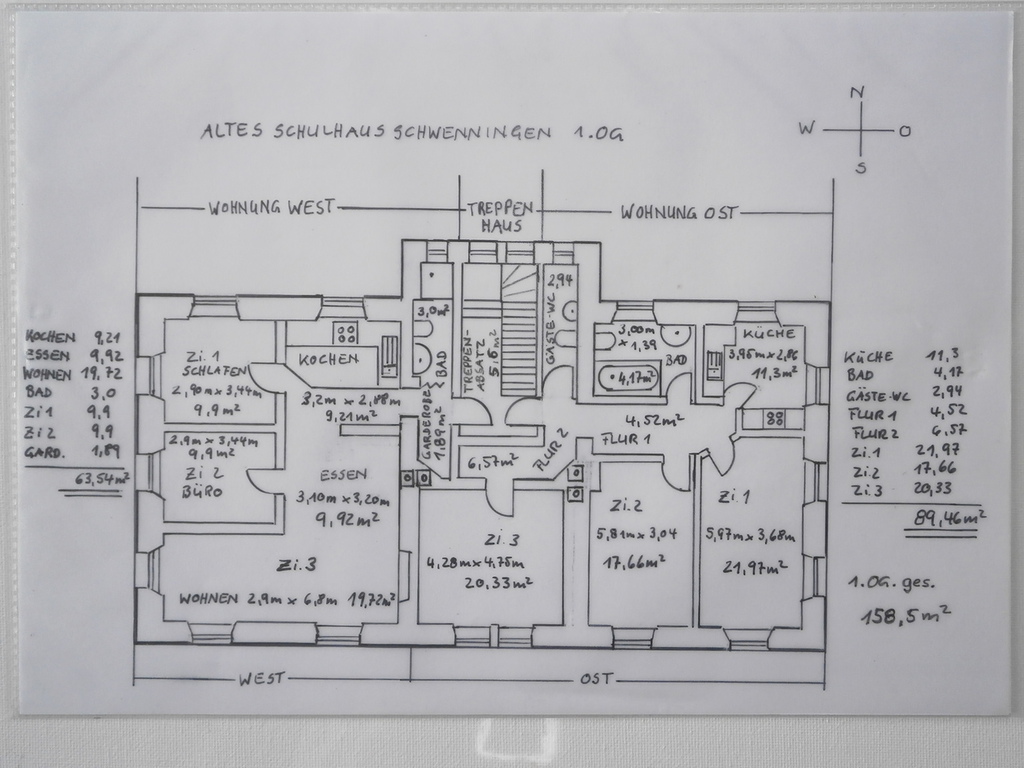 ALTES SCHULHAUS SCHWENNINGEN 1.OG
N
W O
S
WOHNUNG WEST
TREPPEN
HAUS
WOHNUNG OST
KOCHEN 9,21
ESSEN 9,92
WOHNEN 19,72
BAD 3,0
Zi1 9,9
Zi2 9,9
GARD. 1,89
63,54m²
Zi.1
SCHLAFEN
2,90m x 3,44m
9,9m²
2,9m x 3,44m
9,9m²
Zi 2
BÜRO
KOCHEN
3,2m x 2,88m
9,21m²
ESSEN
3,10m x 3,20m
9,92m²
Zi.3
WOHNEN 2,9m x 6,8m 19,72m²
3,0m²
BAD
GARDEROBE
1,89m²
TREPPEN-
ABSATZ
5,6m²
2,94
GÄSTE-WC
3,00m
x 1,39
BAD
4,17m²
KÜCHE
3,95m x 2,86
11,3m²
4,52m²
FLUR 1
FLUR 2
6,57m²
Zi.3
4,28m x 4,75m
20,33m²
Zi.2
5,81m x 3,04
17,66m²
Zi.1
5,97m x 3,68m
21,97m²
KÜCHE 11,3
BAD 4,17
GÄSTE-WC 2,94
FLUR 1 4,52
FLUR 2 6,57
Zi.1 21,97
Zi.2 17,66
Zi.3 20,33
89,46m²
1.OG. ges.
158,5m²
WEST
OST